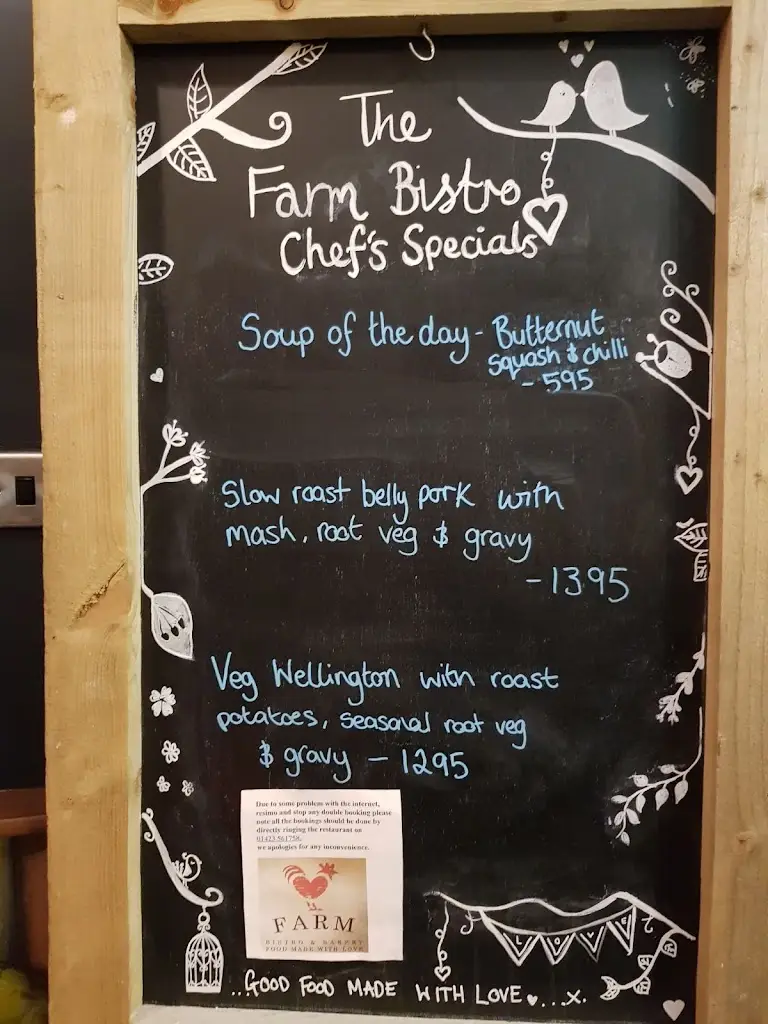 The
Farm Bistro
Chef's Specials
Soup of the day - Butternut
Squash & chilli
- 595
Slow roast belly pork with
mash, root veg & gravy
- 1395
Veg Wellington with roast
potatoes, seasonal root veg
& gravy - 1295
Due to some problem with the internet,
resimo and stop any double booking please
note all the bookings should be done by
directly ringing the restaurant on
01423 561758.
we apologies for any inconvenience.
FARM
BISTRO & BAKERY
FOOD MADE WITH LOVE
LOVE
...GOOD FOOD MADE WITH LOVE...x.